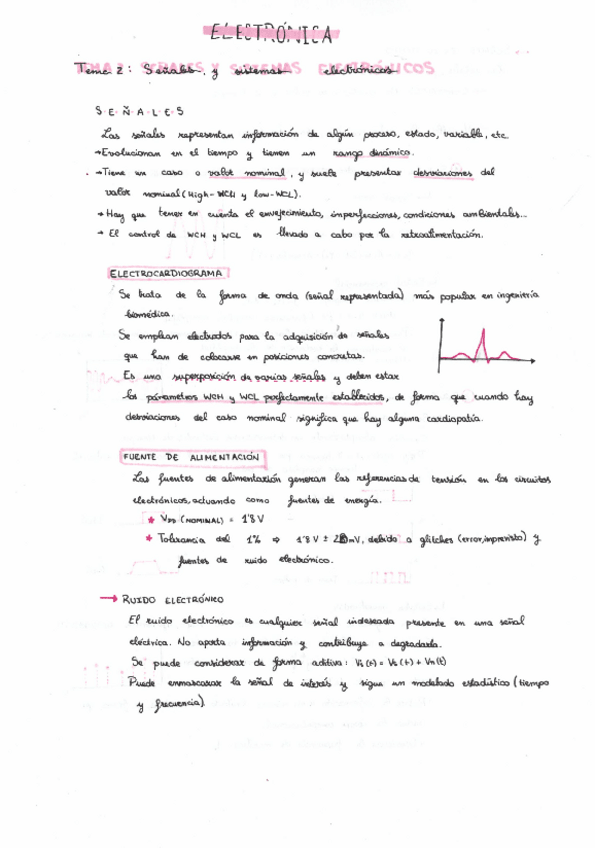 ELECTRÓNICA
Tema 2: Señales y sistemas electrónicos
S·E·Ñ·A·L·E·S
Las señales representan información de algún proceso, estado, variable, etc.
→Evolucionan en el tiempo y tienen un rango dinámico.
→Tiene un caso o valor nominal, y suele presentar desviaciones del
valor nominal (High-WCH y low-WCL).
→ Hay que tener en cuenta el envejecimiento, imperfecciones, condiciones ambientales...
→ El control de WCH y WCL es llevado a cabo por la retroalimentación.
ELECTROCARDIOGRAMA
Se trata de la forma de onda (señal representada) más popular en ingeniería
biomédica.
Se emplean electrodos para la adquisición de señales
que han de colocarse en posiciones concretas.
Es una superposición de varias señales y deben estar
los parámetros WCH y WCL perfectamente establecidos, de forma que cuando hay
desviaciones del caso nominal significa que hay alguna cardiopatía.
FUENTE DE ALIMENTACIÓN
Las fuentes de alimentación generan las referencias de tensión en los circuitos
electrónicos, actuando como fuentes de energía.
* VDD (NOMINAL) = 1'8 V
* Tolerancia del 1% ⇒ 1'8 V ± mV, debido a glitches (error, imprevisto) y
fuentes de ruido electrónico.
→ RUIDO ELECTRÓNICO
El ruido electrónico es cualquier señal indeseada presente en una señal
eléctrica. No aporta información y contribuye a degradarla.
Se puede considerar de forma aditiva: (t) = Vs(t) + Vn(t)
Puede enmascarar la señal de interés y sigue un modelado estadístico (tiempo
y frecuencia)